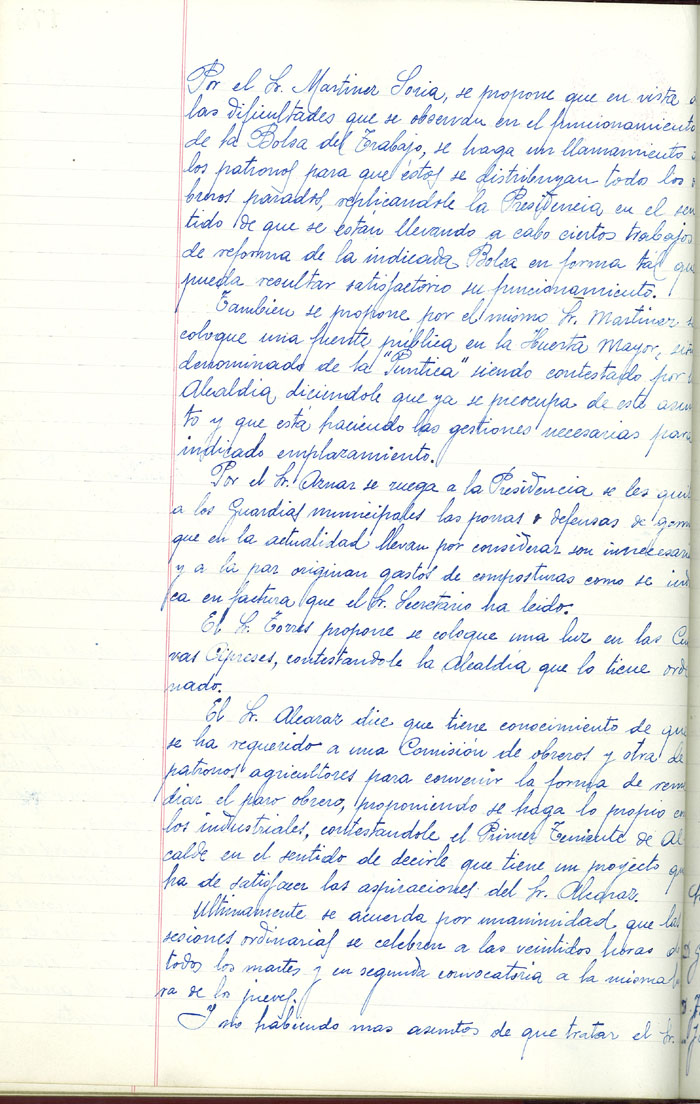 Por el Sr. Martinez Soria, se propone que en vista
las dificultades que se observan en el funcionamient
de la Bolsa del Trabajo, se haga un llamamiento
los patronos para que éstos se distribuyan todo los
breros parados, replicandole la Presidencia en el sen
tido de que se están llevando a cabo ciertos trabajos
de reforma de la indicada Bolsa en forma tal qu
pueda resultar satisfactorio su funcionamiento.
Tambien se propone por el mismo Sr. Martinez s
coloque una fuente pública en la Huerta Mayor, siti
denominado de la "Puntica" siendo contestado por
Alcaldia diciendole que ya se preocupa de este asun
to y que está haciendo las gestiones necesarias para
indicado emplazamiento.
Por el Sr. Aznar se ruega a la Presidencia se les quit
a los Guardias municipales las porras o defensas de gom
que en la actualidad llevan por considerar son innecesari
y a la par originan gastos de composturas como se indi
ca en factura que el Sr. Secretario ha leido.
El Sr. Torres propone se coloque una luz en las Cu
vas Cipreses, contestandole la Alcaldia que lo tiene orde
nado.
El Sr. Alcaraz dice que tiene conocimiento de que
se ha requerido a una Comisión de obreros y otra de
patronos agricultores para convenir la forma de reme
diar el paro obrero, proponiendo se haga lo propio en
los industriales, contestandole el Primer Teniente de Al
calde en el sentido de decirle que tiene un proyecto qu
ha de satisfacer las aspiraciones del Sr. Alcaraz.
Ultimamente se acuerda por unanimidad que las
sesiones ordinarias se celebren a las veintidos horas de
todos los martes y en segunda convocatoria a la misma ho
ra de los jueves.
Y no habiendo mas asuntos de que tratar el Sr.